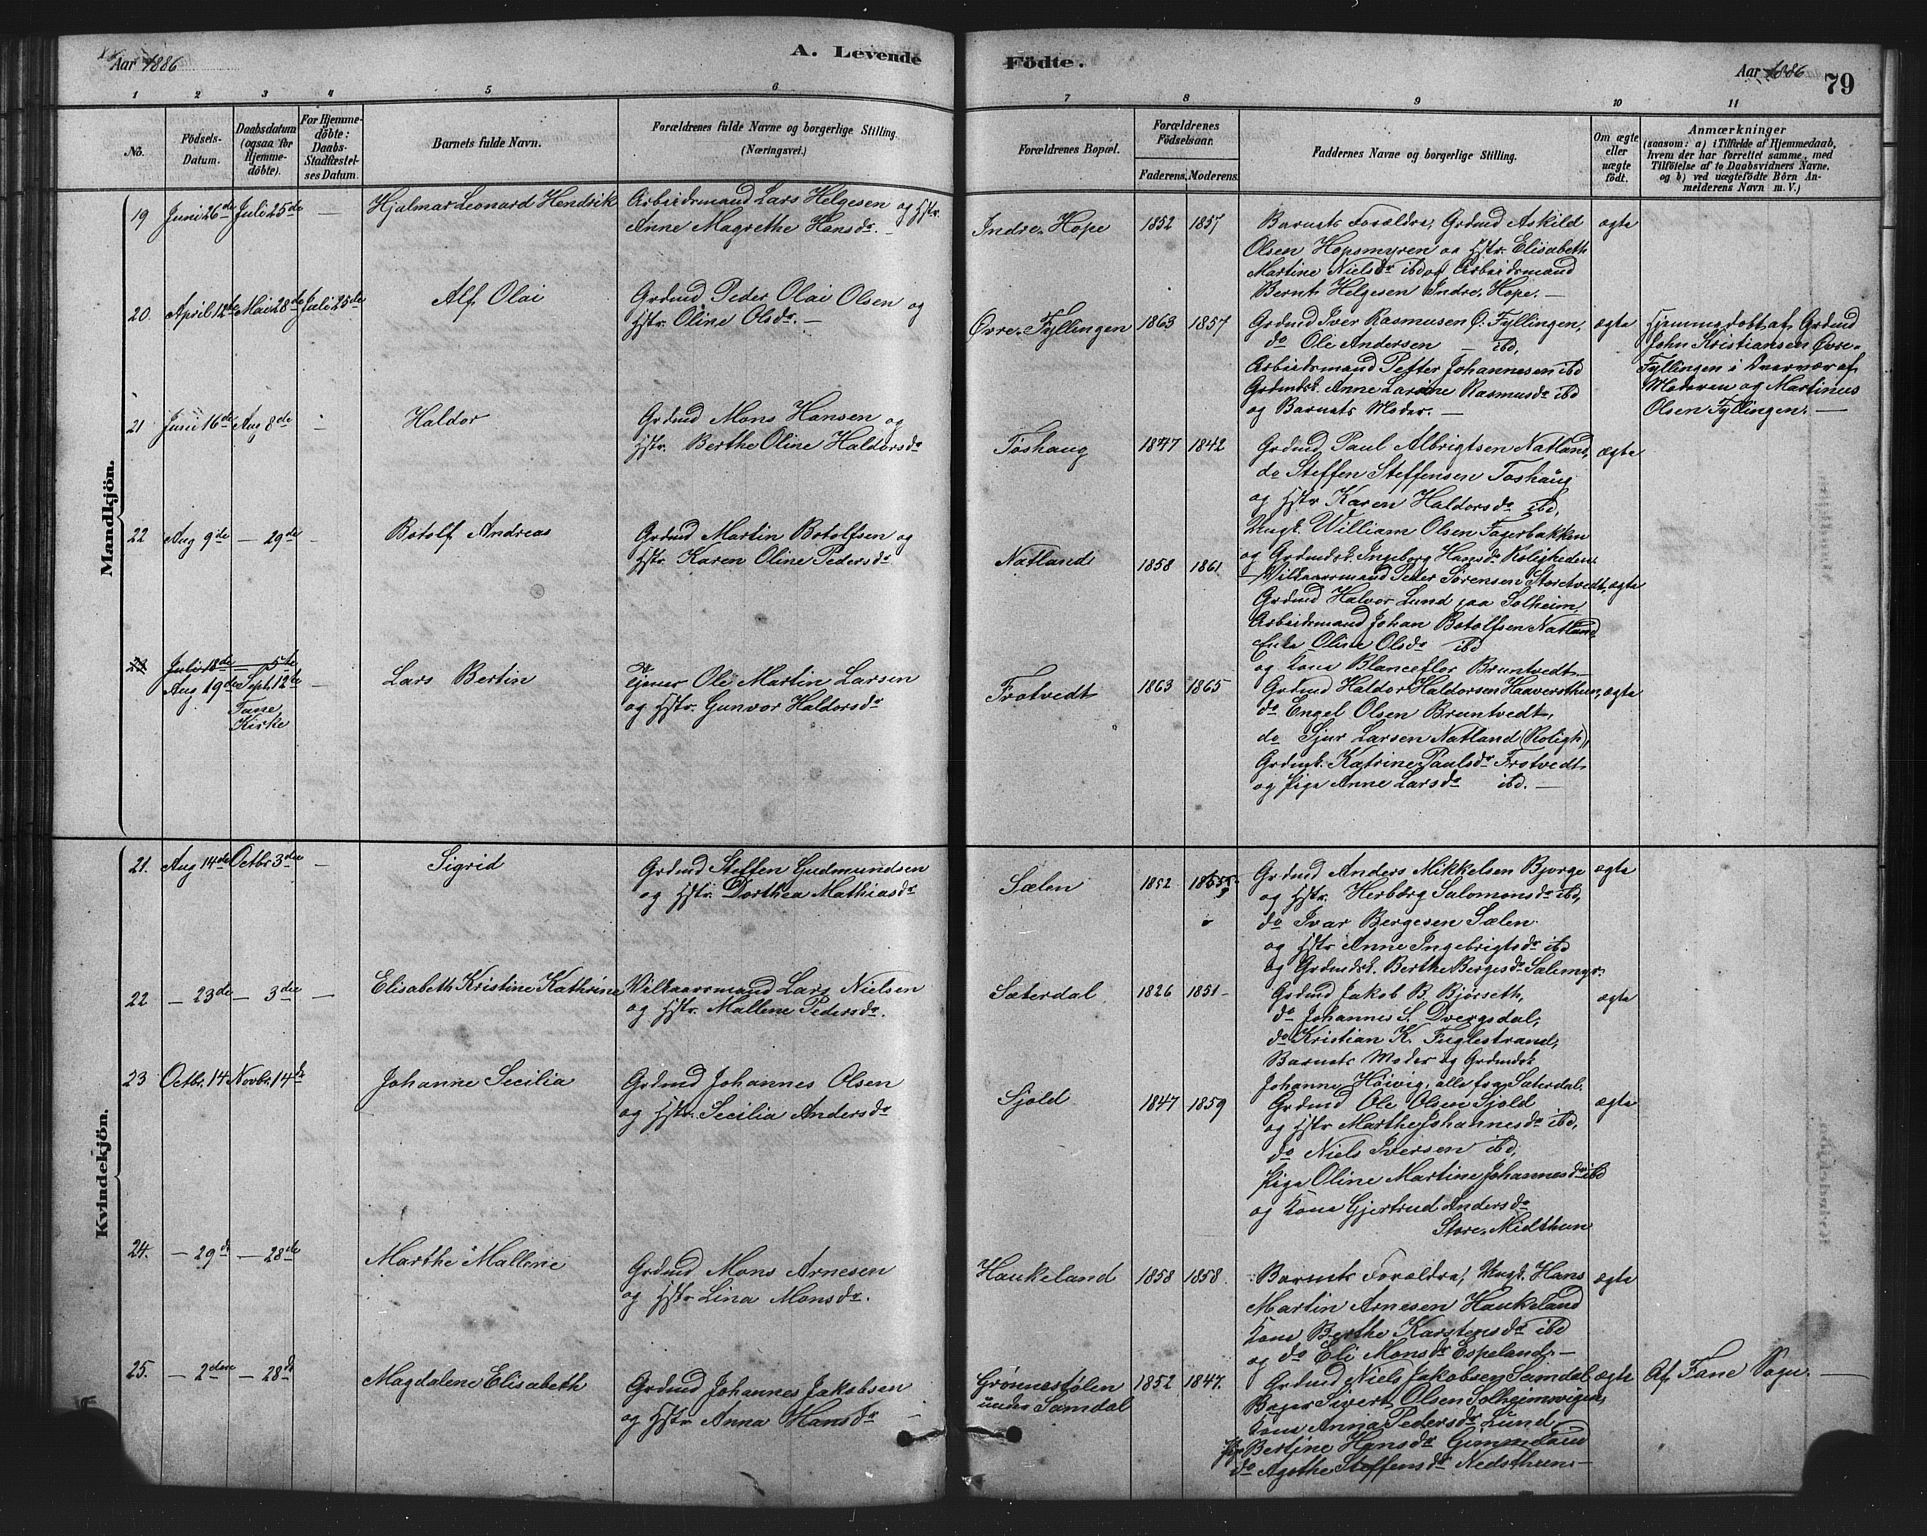 Aar 1886
A. Levende
Födte.
Aar 1886
79
1 2 3 4 5 6 7 8 9 10 11
No.
Födsels-
Datum.
Daabsdatum
(ogsaa for
Hjemme-
döbte).
For Hjemme-
döbte:
Daabs-
Stadfæstel-
ses Datum.
Barnets fulde Navn.
Forældrenes fulde Navne og borgerlige Stilling.
(Næringsvei.)
Forældrenes Bopæl.
Forældrenes
Födselsaar.
Faderens. Moderens.
Faddernes Navne og borgerlige Stilling.
Om ægte
eller
uægte
födt.
Anmærkninger
(saasom: a) i Tilfælde af Hjemmedaab,
hvem der har forrettet samme, med
Tilföielse af to Daabsvidners Navne,
og b) ved uægtefödte Börn An-
melderens Navn m. V.)
Mandkjön.
19 Juni 26de Juli 25de — Hjalmar Leonard Hendrik
Arbeidsmand Lars Helgesen og Hstr.
Anne Magrethe Hansdr. —
Indre Hope 1852 1857
Barnets Forældre, Grdmd Askild
Olsen Hopsmyren og Hstr. Elisabeth
Martine Nielsdr ibd og Arbeidsmand
Bernt Helgesen Indre Hope. —
ægte
20. April 12de Mai 28de Juli 25de Alf Olai
Grdmd Peder Olai Olsen og
Hstr. Oline Olsdr. —
Øvre Fyllingen 1863 1857
Grdmd Iver Rasmusen Ø. Fyllingen,
do Ole Andersen — ibd,
Arbeidsmand Petter Johannesen ibd
Grdmdsk. Anne Larine Rasmusdr ibd
og Barnets Moder. —
ægte
Hjemmedøbt af Grdmd
John Kristiansen Øvre-
Fyllingen i Overvær af
Moderen og Martinus
Olsen Fyllingen. —
21 Juni 16de Aug 8de Haldor
Grdmd Mons Hansen og
Hstr. Berthe Oline Haldorsdr
Toshaug 1847 1842
Grdmd Paul Albrigtsen Natland,
do Steffen Steffensen Toshaug
og Hstr Karen Haldorsdr ibd,
Ungk. William Olsen Fagerbakken
og Grdmdsk. Ingeborg Hansdr Roligheden
ægte
22 Aug 9de — 29de — Botolf Andreas
Grdmd Martin Botolfsen og
Hstr Karen Oline Pedersdr
Natland 1858 1861
Vilkaarsmand Peder Sørensen Storetvedt,
Grdmd Halvor Lund paa Solheim,
Arbeidsmand Johan Botolfsen Natland
Enke Oline Olsdr ibd
og Kone Blancefler Bruntvedt
ægte
23 Juli 18de — 5te
Aug 19de Sept. 12te —
Fane
Kirke
Lars Bertin
Ole Martin Larsen
og Hstr. Gunvor Haldorsdr
Frotvedt 1863 1865
Grdmd Haldor Haldorsen Haaversthun,
do Engel Olsen Bruntvedt,
do Sjur Larsen Natland (Roligh),
Grdmsk. Katrine Paulsdr Frotvedt
og Pige Anne Larsdr ibd. —
ægte
Kvindekjön.
21. Aug 14de Octbr 3die — Sigrid
Grdmd Steffen Gudmundsen
og Hstr. Dorthea Mathiasdr
Sælen 1852 1855
Grdmd Anders Mikkelsen Bjorge
og Hstr. Herbørg Salomonsdr ibd,
do Ivar Bergesen Sælen
og Hstr Anne Ingebrigtsdr ibd
og Grdmdsk. Berthe Bergesdr Sælemyr.
ægte
22 — 23de — 3die — Elisabeth Kristine Kathrine
Vilkaarsmand Lars Nielsen
og Hstr. Mallene Pedersdr.
Sæterdal 1826 1851
Grdmd Jakob B. Bjørseth,
do Johannes S. Dvergsdal,
do Kristian K. Fuglestrand,
Barnets Moder og Grdmdsk
Johanne Høivig, alle fra Sæterdal.
ægte
23 Octbr. 14 Novbr. 14de Johanne Secilia
Grdmd Johannes Olsen
og Hstr. Secilia Andersdr
Sjold 1847 1859
Grdmd Ole Olsen Sjold
og Hstr Marthe Johannesdr ibd,
do Niels Iversen ibd,
Pige Oline Martine Johannesdr ibd
og Kone Gjertrud Andersdr
Store Midthun
ægte
24. — 29de — 28de Marthe Mallene
Grdmd Mons Arnesen
og Hstr Lina Monsdr.
Haukeland 1858 1858.
Barnets Forældre, Ungk. Hans
Martin Arnesen Haukeland
Kone Berthe Karstensdr ibd
og do Eli Monsdr Espeland. —
ægte
25. — 2den — 28de Magdalene Elisabeth
Grdmd Johannes Jakobsen
og Hstr Anna Hansdr —
Grønnestølen
under Samdal
1852 1847.
Grdmd Niels Jakobsen Samdal
Bager Sivert Olsen Solheimsvigen,
Kone Anna Pedersdr Lund
Pige Bertine Hansdr
do Agothe Steffensdr Nedsthun —
ægte
Af Fane Sogn. —